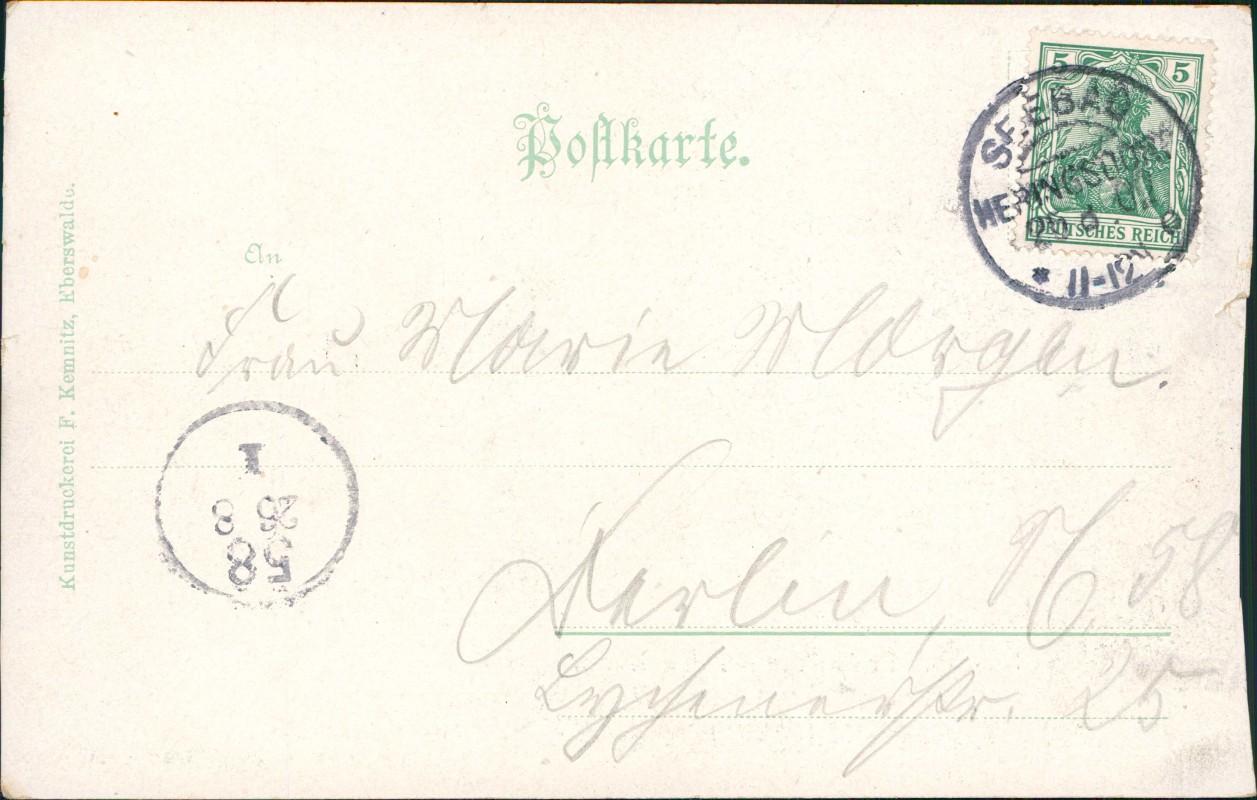 5 5
DEUTSCHES REICH
SEEBAD
HERINGSDORF
11-12V
Postkarte.
An
Frau Marie Morgen.
Berlin, N 58
Lychenerstr. 25
Kunstdruckerei F. Kemnitz, Eberswalde.
58
8
1